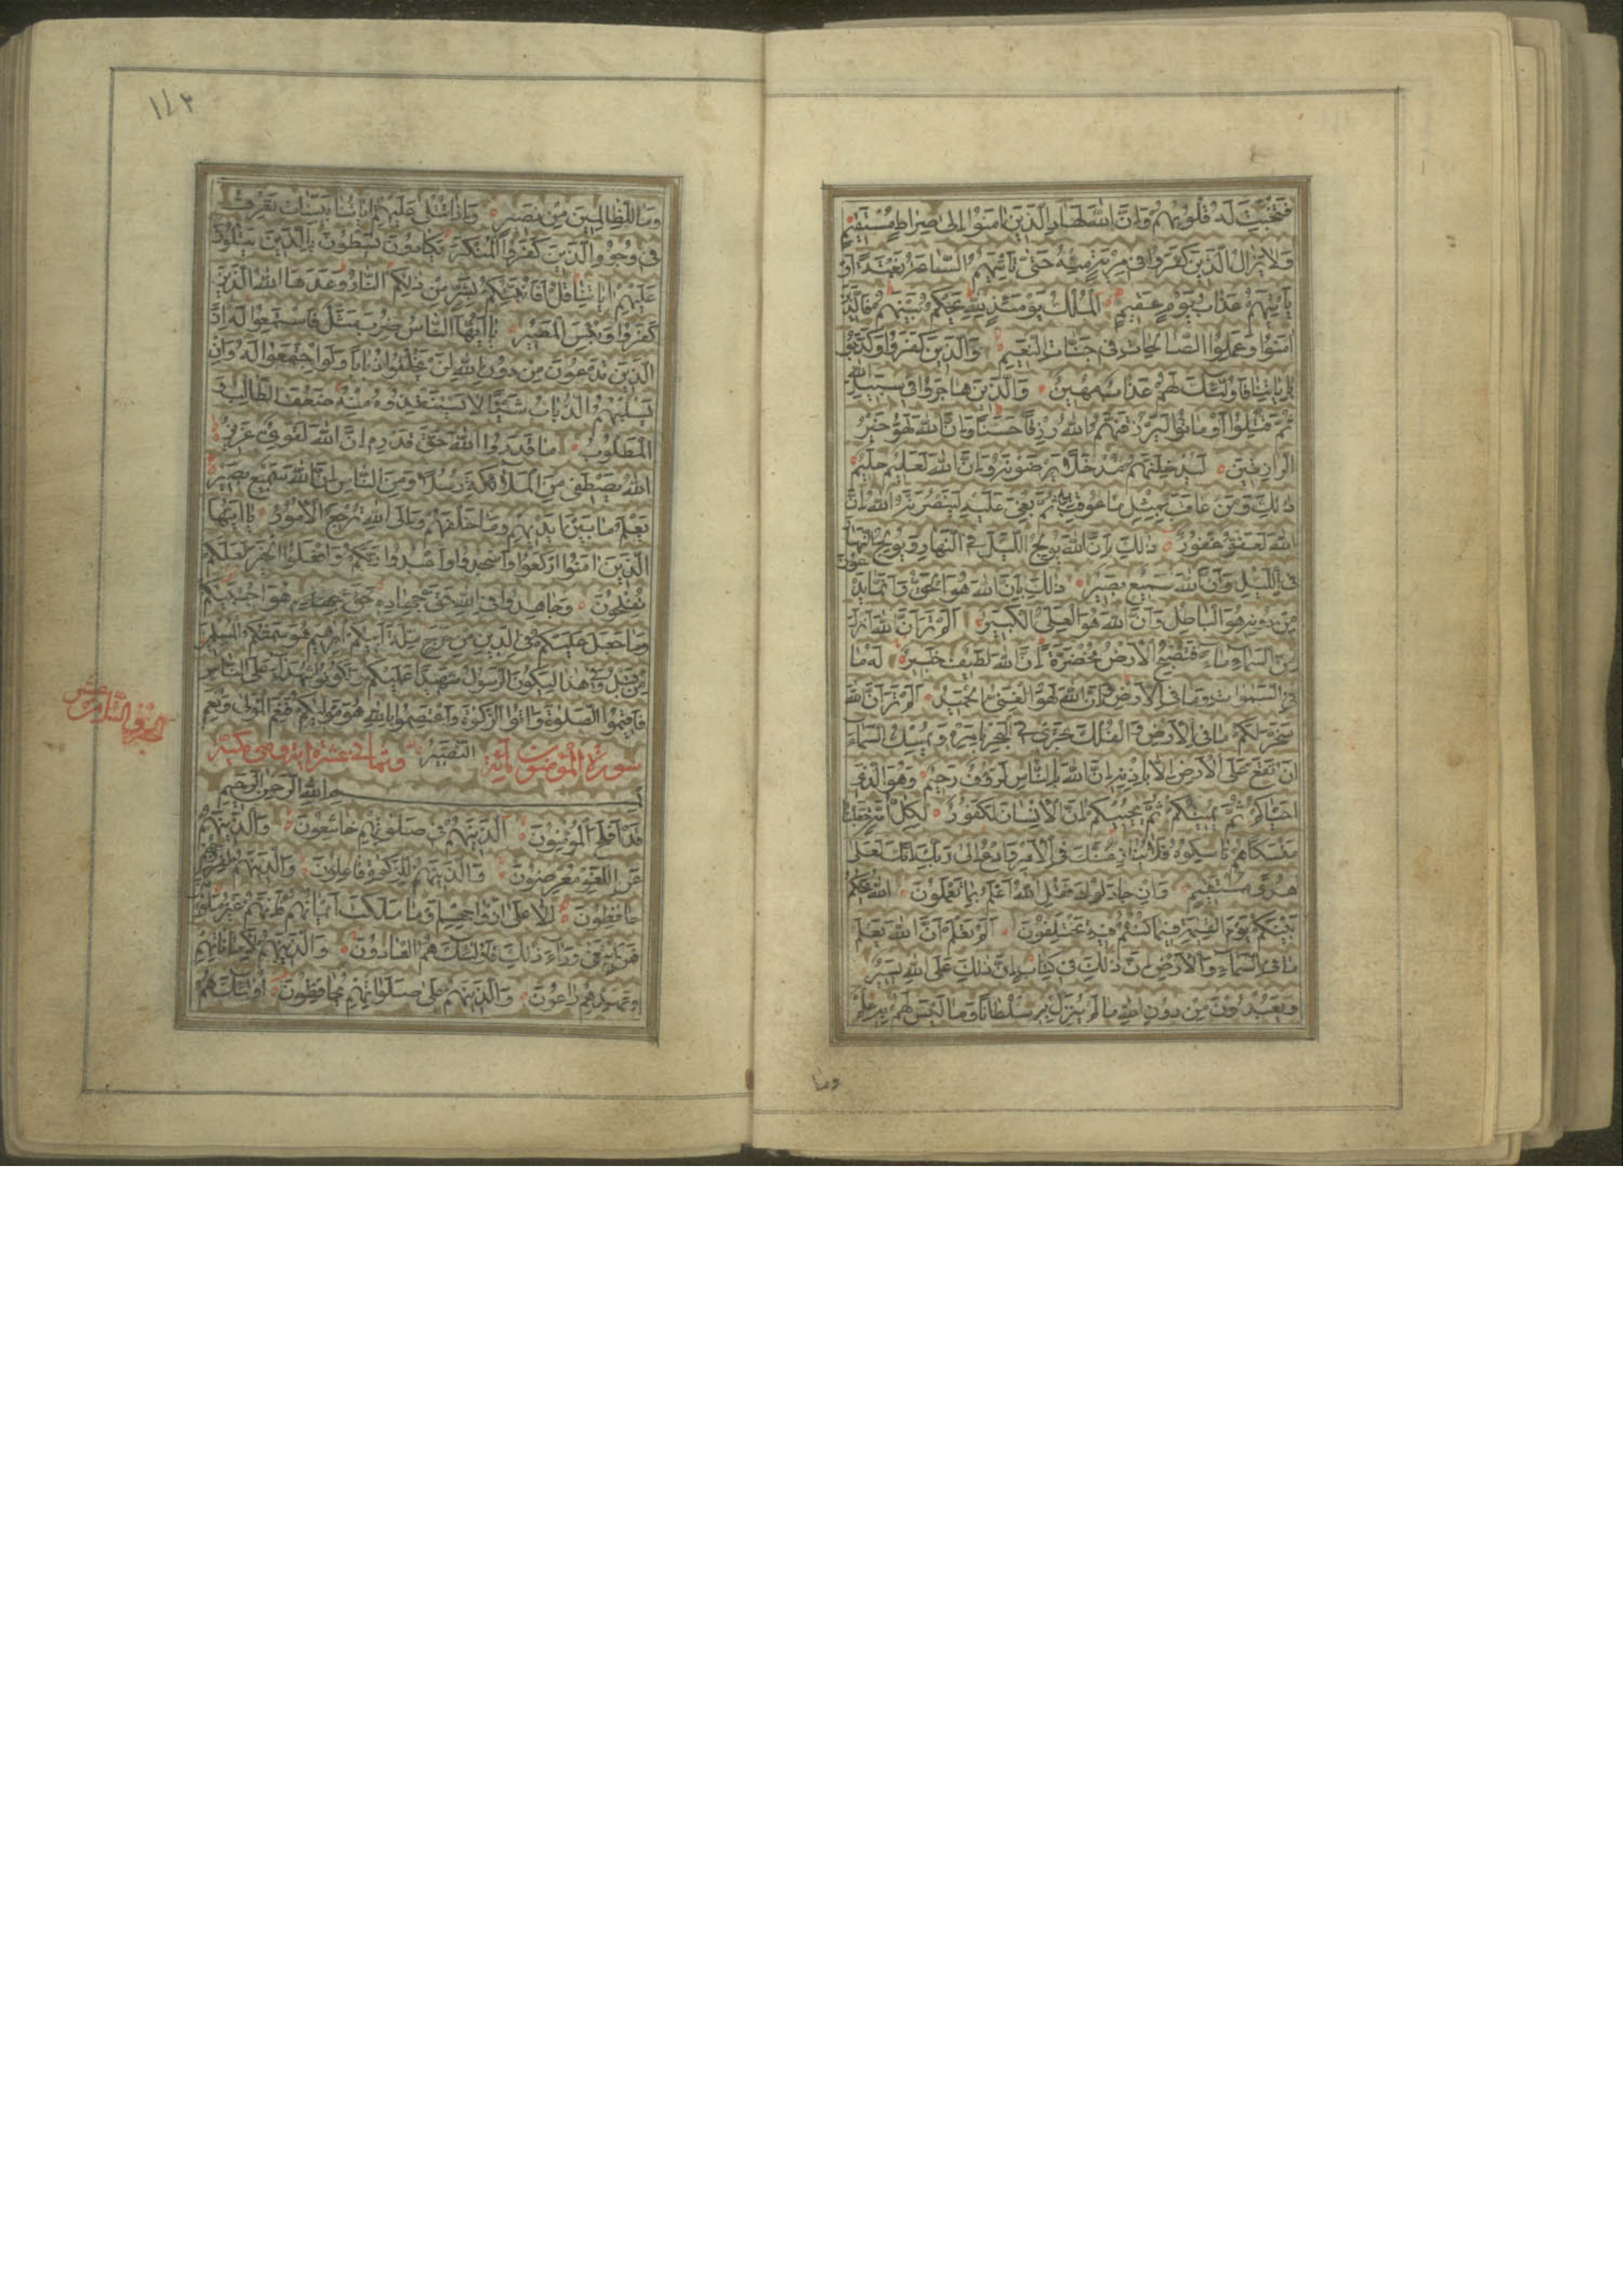 فَتُخْبِتَ لَهُ قُلُوبُهُمْ وَاِنَّ اللّٰهَ لَهَادِ الَّذِينَ اٰمَنُوا اِلٰى صِرَاطٍ مُسْتَقِيمٍ
وَلَا يَزَالُ الَّذِينَ كَفَرُوا فِى مِرْيَةٍ مِنْهُ حَتّٰى تَأْتِيَهُمُ السَّاعَةُ بَغْتَةً اَوْ
يَأْتِيَهُمْ عَذَابُ يَوْمٍ عَقِيمٍ الْمُلْكُ يَوْمَئِذٍ لِلّٰهِ يَحْكُمُ بَيْنَهُمْ فَالَّذِينَ
اٰمَنُوا وَعَمِلُوا الصَّالِحَاتِ فِى جَنَّاتِ النَّعِيمِ وَالَّذِينَ كَفَرُوا وَكَذَّبُوا
بِاٰيَاتِنَا فَاُولٰئِكَ لَهُمْ عَذَابٌ مُهِينٌ وَالَّذِينَ هَاجَرُوا فِى سَبِيلِ اللّٰهِ
ثُمَّ قُتِلُوا اَوْ مَاتُوا لَيَرْزُقَنَّهُمُ اللّٰهُ رِزْقًا حَسَنًا وَاِنَّ اللّٰهَ لَهُوَ خَيْرُ
الرَّازِقِينَ لَيُدْخِلَنَّهُمْ مُدْخَلًا يَرْضَوْنَهُ وَاِنَّ اللّٰهَ لَعَلِيمٌ حَلِيمٌ
ذٰلِكَ وَمَنْ عَاقَبَ بِمِثْلِ مَا عُوقِبَ بِهِ ثُمَّ بُغِىَ عَلَيْهِ لَيَنْصُرَنَّهُ اللّٰهُ اِنَّ
اللّٰهَ لَعَفُوٌّ غَفُورٌ ذٰلِكَ بِاَنَّ اللّٰهَ يُولِجُ الَّيْلَ فِى النَّهَارِ وَيُولِجُ النَّهَارَ
فِى الَّيْلِ وَاَنَّ اللّٰهَ سَمِيعٌ بَصِيرٌ ذٰلِكَ بِاَنَّ اللّٰهَ هُوَ الْحَقُّ وَاَنَّ مَا يَدْعُونَ
مِنْ دُونِهِ هُوَ الْبَاطِلُ وَاَنَّ اللّٰهَ هُوَ الْعَلِىُّ الْكَبِيرُ اَلَمْ تَرَ اَنَّ اللّٰهَ اَنْزَلَ
مِنَ السَّمَاءِ مَاءً فَتُصْبِحُ الْاَرْضُ مُخْضَرَّةً اِنَّ اللّٰهَ لَطِيفٌ خَبِيرٌ لَهُ مَا
فِى السَّمٰوَاتِ وَمَا فِى الْاَرْضِ وَاِنَّ اللّٰهَ لَهُوَ الْغَنِىُّ الْحَمِيدُ اَلَمْ تَرَ اَنَّ اللّٰهَ
سَخَّرَ لَكُمْ مَا فِى الْاَرْضِ وَالْفُلْكَ تَجْرِى فِى الْبَحْرِ بِاَمْرِهِ وَيُمْسِكُ السَّمَاءَ
اَنْ تَقَعَ عَلَى الْاَرْضِ اِلَّا بِاِذْنِهِ اِنَّ اللّٰهَ بِالنَّاسِ لَرَؤُفٌ رَحِيمٌ وَهُوَ الَّذِى
اَحْيَاكُمْ ثُمَّ يُمِيتُكُمْ ثُمَّ يُحْيِيكُمْ اِنَّ الْاِنْسَانَ لَكَفُورٌ لِكُلِّ اُمَّةٍ جَعَلْنَا
مَنْسَكًا هُمْ نَاسِكُوهُ فَلَا يُنَازِعُنَّكَ فِى الْاَمْرِ وَادْعُ اِلٰى رَبِّكَ اِنَّكَ لَعَلٰى
هُدًى مُسْتَقِيمٍ وَاِنْ جَادَلُوكَ فَقُلِ اللّٰهُ اَعْلَمُ بِمَا تَعْمَلُونَ اَللّٰهُ يَحْكُمُ
بَيْنَكُمْ يَوْمَ الْقِيٰمَةِ فِيمَا كُنْتُمْ فِيهِ تَخْتَلِفُونَ اَلَمْ تَعْلَمْ اَنَّ اللّٰهَ يَعْلَمُ
مَا فِى السَّمَاءِ وَالْاَرْضِ اِنَّ ذٰلِكَ فِى كِتَابٍ اِنَّ ذٰلِكَ عَلَى اللّٰهِ يَسِيرٌ
وَيَعْبُدُونَ مِنْ دُونِ اللّٰهِ مَا لَمْ يُنَزِّلْ بِهِ سُلْطَانًا وَمَا لَيْسَ لَهُمْ بِهِ عِلْمٌ
وما
١٧٣
وَمَا لِلظَّالِمِينَ مِنْ نَصِيرٍ وَاِذَا تُتْلٰى عَلَيْهِمْ اٰيَاتُنَا بَيِّنَاتٍ تَعْرِفُ
فِى وُجُوهِ الَّذِينَ كَفَرُوا الْمُنْكَرَ يَكَادُونَ يَسْطُونَ بِالَّذِينَ يَتْلُونَ
عَلَيْهِمْ اٰيَاتِنَا قُلْ اَفَاُنَبِّئُكُمْ بِشَرٍّ مِنْ ذٰلِكُمُ النَّارُ وَعَدَهَا اللّٰهُ الَّذِينَ
كَفَرُوا وَبِئْسَ الْمَصِيرُ يَا اَيُّهَا النَّاسُ ضُرِبَ مَثَلٌ فَاسْتَمِعُوا لَهُ اِنَّ
الَّذِينَ تَدْعُونَ مِنْ دُونِ اللّٰهِ لَنْ يَخْلُقُوا ذُبَابًا وَلَوِ اجْتَمَعُوا لَهُ وَاِنْ
يَسْلُبْهُمُ الذُّبَابُ شَيْئًا لَا يَسْتَنْقِذُوهُ مِنْهُ ضَعُفَ الطَّالِبُ وَ
الْمَطْلُوبُ مَا قَدَرُوا اللّٰهَ حَقَّ قَدْرِهِ اِنَّ اللّٰهَ لَقَوِىٌّ عَزِيزٌ
اَللّٰهُ يَصْطَفِى مِنَ الْمَلَائِكَةِ رُسُلًا وَمِنَ النَّاسِ اِنَّ اللّٰهَ سَمِيعٌ بَصِيرٌ
يَعْلَمُ مَا بَيْنَ اَيْدِيهِمْ وَمَا خَلْفَهُمْ وَاِلَى اللّٰهِ تُرْجَعُ الْاُمُورُ يَا اَيُّهَا
الَّذِينَ اٰمَنُوا ارْكَعُوا وَاسْجُدُوا وَاعْبُدُوا رَبَّكُمْ وَافْعَلُوا الْخَيْرَ لَعَلَّكُمْ
تُفْلِحُونَ وَجَاهِدُوا فِى اللّٰهِ حَقَّ جِهَادِهِ هُوَ اجْتَبٰيكُمْ
وَمَا جَعَلَ عَلَيْكُمْ فِى الدِّينِ مِنْ حَرَجٍ مِلَّةَ اَبِيكُمْ اِبْرٰهِيمَ هُوَ سَمّٰيكُمُ الْمُسْلِمِينَ
مِنْ قَبْلُ وَفِى هٰذَا لِيَكُونَ الرَّسُولُ شَهِيدًا عَلَيْكُمْ وَتَكُونُوا شُهَدَاءَ عَلَى النَّاسِ
فَاَقِيمُوا الصَّلٰوةَ وَاٰتُوا الزَّكٰوةَ وَاعْتَصِمُوا بِاللّٰهِ هُوَ مَوْلٰيكُمْ فَنِعْمَ الْمَوْلٰى وَنِعْمَ
سورة المؤمنون مائة النَّصِيرُ وثمانى عشرة اية وهى مكية
بسم الله الرحمن الرحيم
قَدْ اَفْلَحَ الْمُؤْمِنُونَ اَلَّذِينَ هُمْ فِى صَلٰوتِهِمْ خَاشِعُونَ وَالَّذِينَ هُمْ
عَنِ اللَّغْوِ مُعْرِضُونَ وَالَّذِينَ هُمْ لِلزَّكٰوةِ فَاعِلُونَ وَالَّذِينَ هُمْ لِفُرُوجِهِمْ
حَافِظُونَ اِلَّا عَلٰى اَزْوَاجِهِمْ اَوْ مَا مَلَكَتْ اَيْمَانُهُمْ فَاِنَّهُمْ غَيْرُ مَلُومِينَ
فَمَنِ ابْتَغٰى وَرَاءَ ذٰلِكَ فَاُولٰئِكَ هُمُ الْعَادُونَ وَالَّذِينَ هُمْ لِاَمَانَاتِهِمْ
وَعَهْدِهِمْ رَاعُونَ وَالَّذِينَ هُمْ عَلٰى صَلَوَاتِهِمْ يُحَافِظُونَ اُولٰئِكَ هُمُ
الجزو الثامن عشر